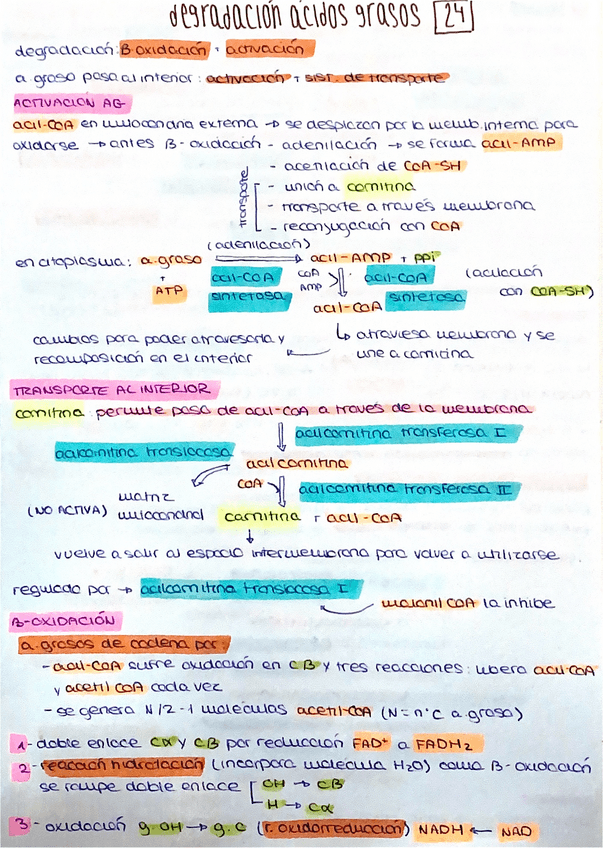 degradación ácidos grasos 24
degradación: B-oxidación + activación
a. graso pasa al interior: activación + sist. de transporte
ACTIVACIÓN AG
acil-COA en mitocondria externa → se desplazan por la memb. interna para
oxidarse → antes B-oxidación - adenilación → se forma acil-AMP
- acenlación de COA-SH
transporte
- unión a carnitina
- transporte a través membrana
- reconjugación con COA
(adenilación)
en citoplasma: a. graso ⟹ acil-AMP + PPi
+ ATP
acil-COA sintetasa
COA
AMP
acil-COA sintetasa
(acilación con COA-SH)
acil-COA
cambios para poder atravesarla y
recomposición en el interior
↳ atraviesa membrana y se
une a carnitina
TRANSPORTE AL INTERIOR
carnitina: permite paso de acil-COA a través de la membrana
acilcarnitina transferasa I
acilcarnitina translocasa
acilcarnitina
COA
acilcarnitina transferasa II
(NO ACTIVA)
matriz
mitocondrial
carnitina + acil-COA
vuelve a salir al espacio intermembrana para volver a utilizarse.
regulado por → acilcarnitina translocasa I
malonil COA la inhibe
B-OXIDACIÓN
a. grasos de cadena par:
- acil-COA sufre oxidación en CB y tres reacciones: libera acil-COA
y acetil COA cada vez
- se genera N/2 - 1 moléculas acetil-COA (N = nºC a. graso)
1- doble enlace Cα y CB por reducción FAD+ a FADH2
2- reacción hidratación (incorpora molécula H2O) como B-oxidación
se rompe doble enlace
OH → CB
H → Cα
3- oxidación g. OH → g. C (r. oxidorreducción) NADH ← NAD